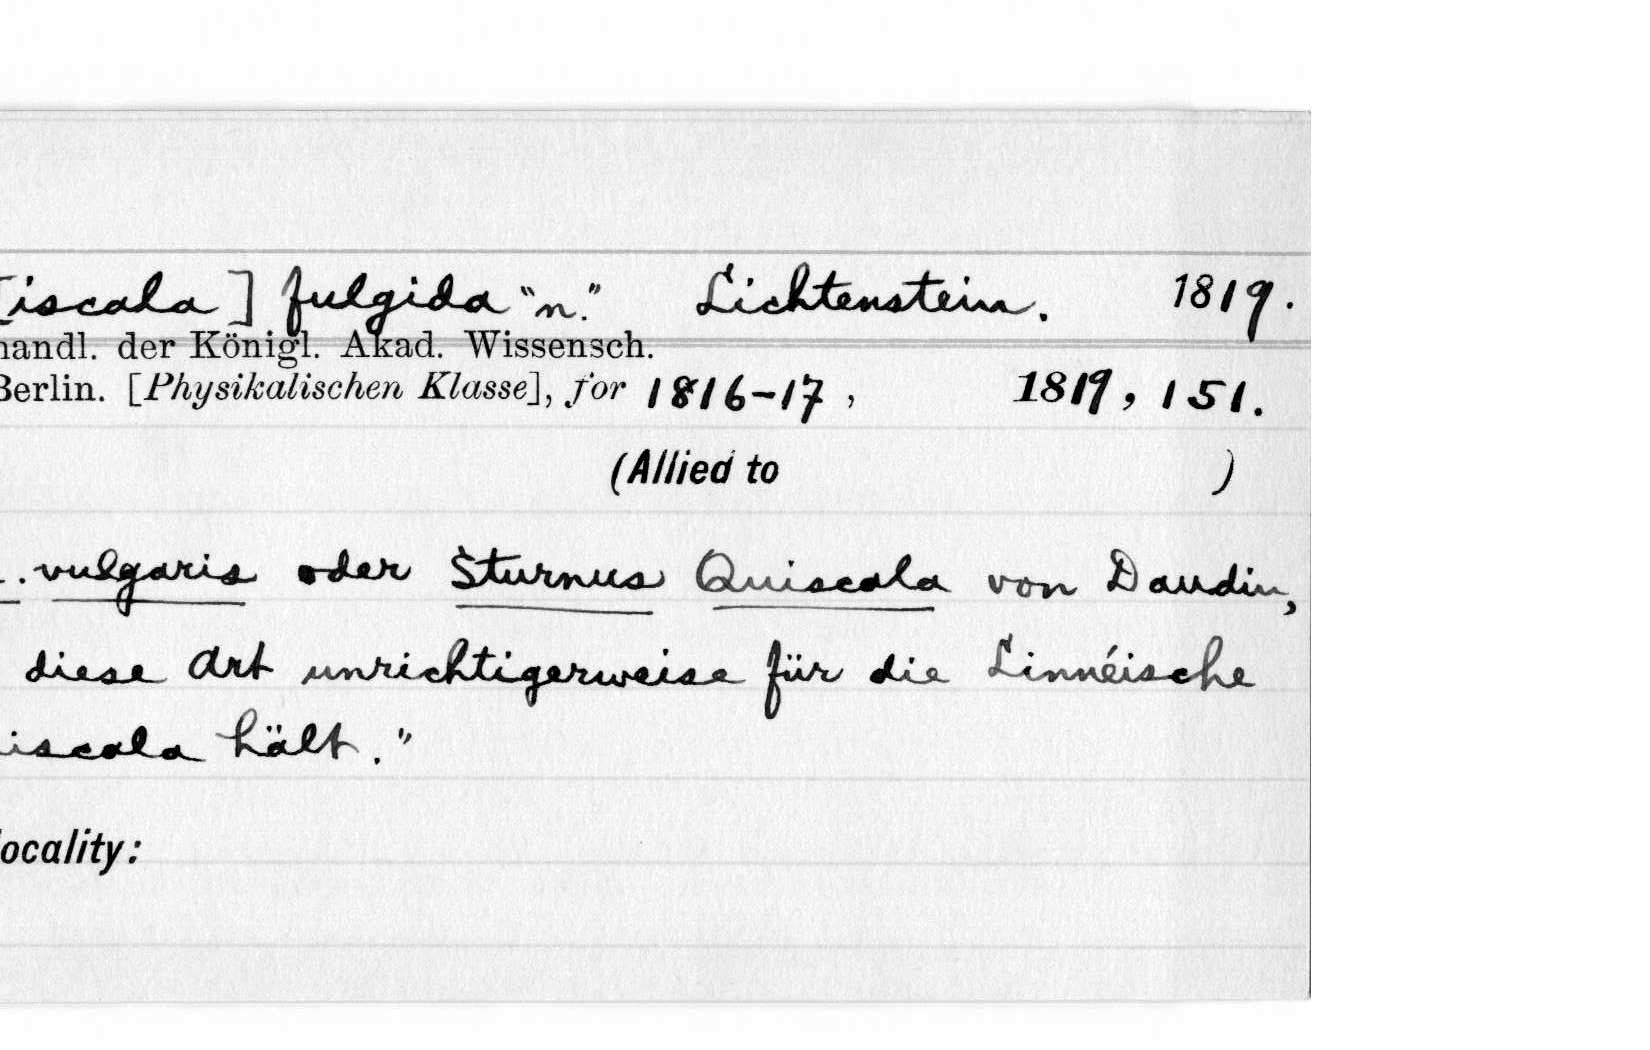 [iscala] fulgida "n." Lichtenstein. 1819.
handl. der Königl. Akad. Wissensch.
Berlin. [Physikalischen Klasse], for 1816-17, 1819, 151.
(Allied to )
. vulgaris oder Sturnus Quiscala von Daudin,
diese Art unrichtigerweise für die Linnéische
iscala hält."
locality: